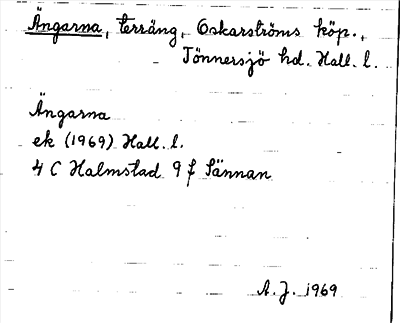 Ängarna, terräng, Oskarströms köp.,
Tönnersjö hd. Hall. l.
Ängarna
ek (1969) Hall. l.
4 C Halmstad 9 f Sännan
A. J. 1969